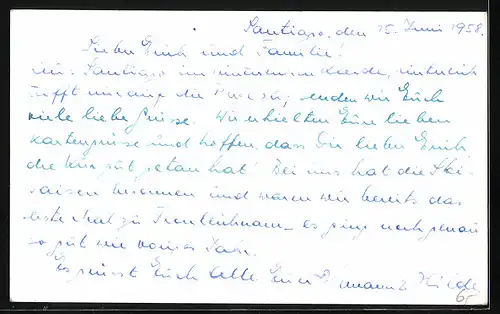 Santiago, den 15. Juni 1958.
Lieber Erich und Familie!
Aus Santiago im winterlichen Kleide, natürlich
trifft nur auf die zu, senden wir Euch
viele liebe Grüsse. Wir erhielten Eure lieben
Kartengrüsse und hoffen, dass Dir lieber Erich
die Kur gut getan hat! Bei uns hat die Ski-
saison begonnen und waren wir bereits das
erste Mal zu Fronleichnam - es ging noch genau
so gut wie voriges Jahr.
Es grüsst Euch alle Euer u. Hilde
65